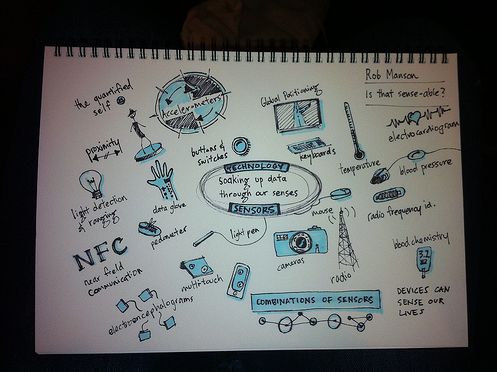 Rob Manson
Is that sense-able?
the quantified
self
Accelerometers
Global Positioning
electrocardiogram
proximity
buttons &
switches
keyboards
temperature
blood pressure
TECHNOLOGY
soaking up data
through our senses
SENSORS
light detection
& ranging
data glove
mouse
radio frequency id.
pedometer
light pen
NFC
near field
communication
cameras
radio
blood chemistry
multitouch
electroencephalograms
COMBINATIONS OF SENSORS
DEVICES CAN
SENSE OUR
LIVES